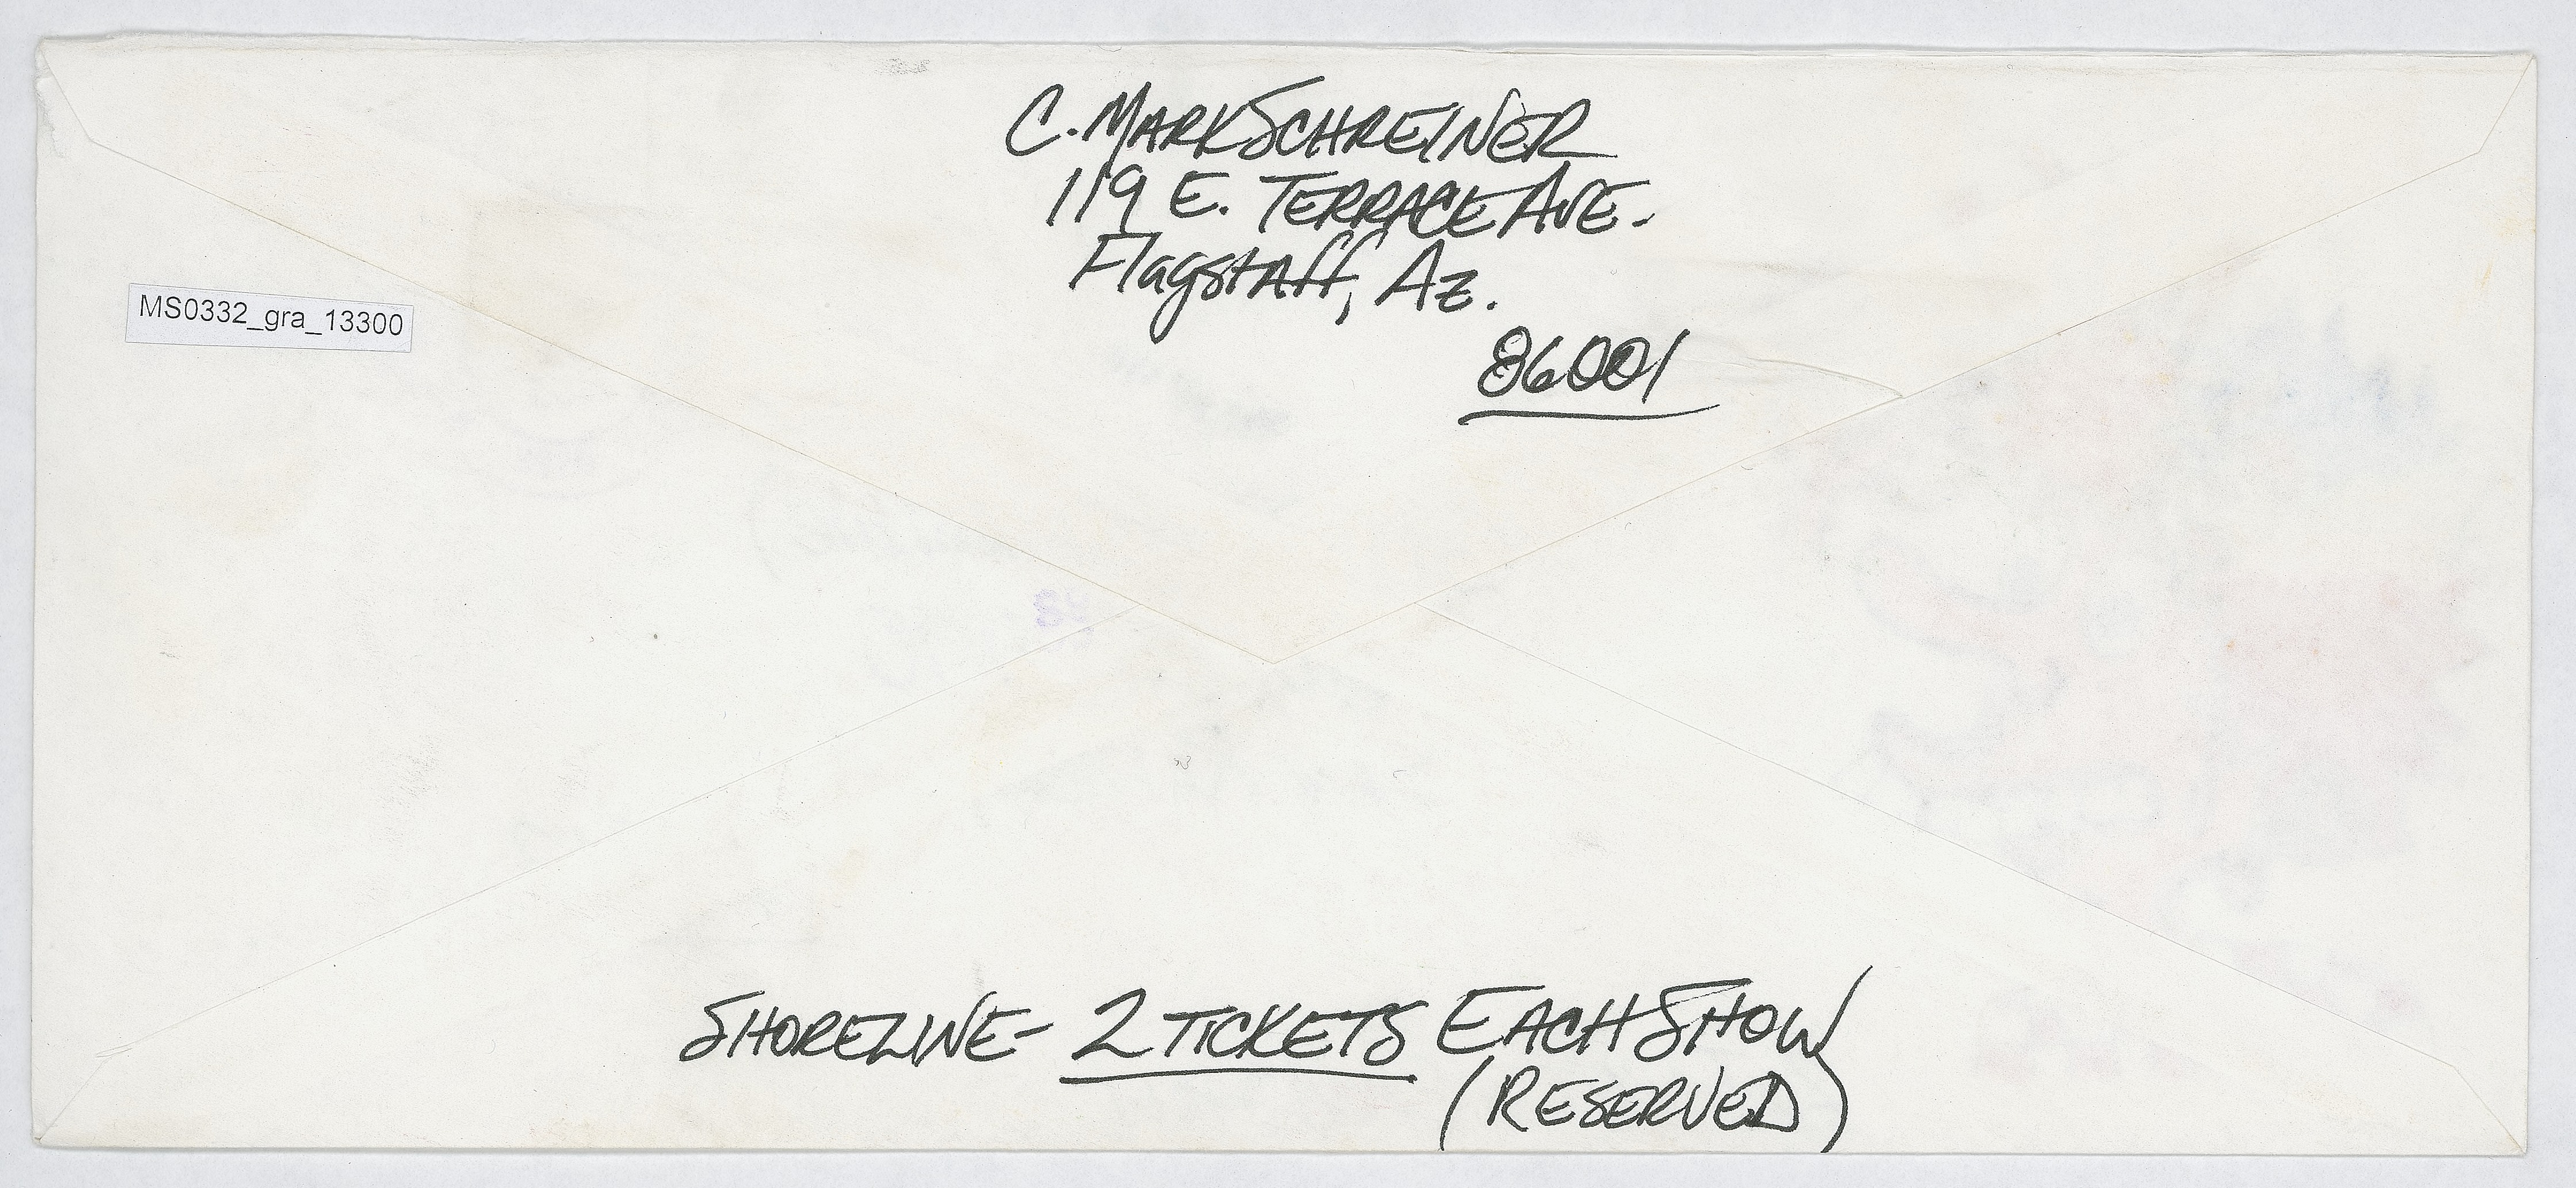 C. MARK SCHREINER
119 E. TERRACE AVE.
Flagstaff, Az.
86001
MS0332_gra_13300
SHORELINE- 2 TICKETS EACH SHOW
(RESERVED)